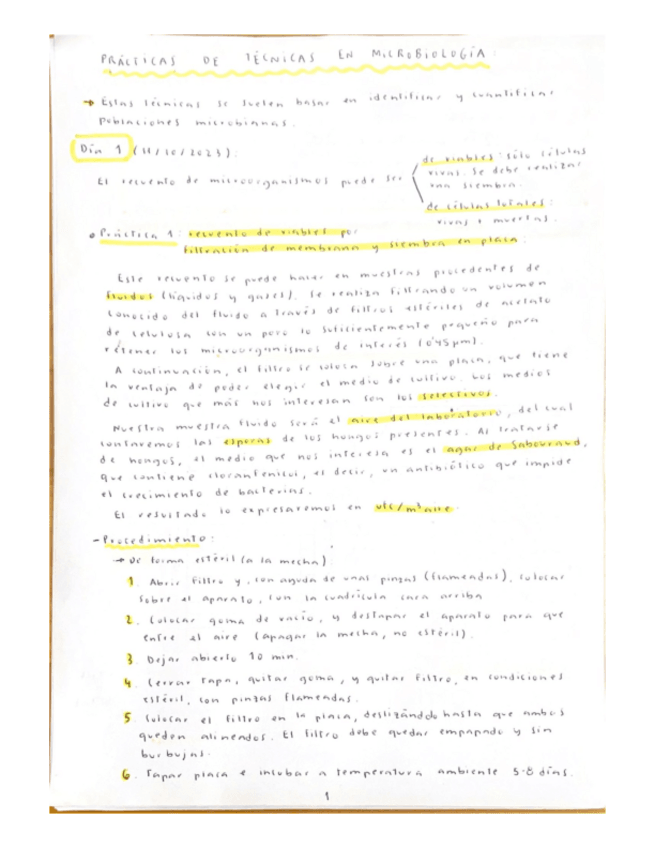 PRÁCTICAS DE TÉCNICAS EN MICROBIOLOGÍA.
→ Estas técnicas se suelen basar en identificar y cuantificar
poblaciones microbianas.
Día 1 (11/10/2023):
El recuento de microorganismos puede ser
de viables: sólo células
vivas. Se debe realizar
una siembra.
de células totales:
vivas + muertas.
• Práctica 1: recuento de viables por
filtración de membrana y siembra en placa:
Este recuento se puede hacer en muestras procedentes de
fluidos (líquidos y gases). Se realiza filtrando un volumen
conocido del fluido a través de filtros estériles de acetato
de celulosa con un poro lo suficientemente pequeño para
retener los microorganismos de interés (0'45 µm).
A continuación, el filtro se coloca sobre una placa, que tiene
la ventaja de poder elegir el medio de cultivo. Los medios
de cultivo que más nos interesan son los selectivos.
Nuestra muestra fluido será el aire del laboratorio, del cual
contaremos las esporas de los hongos presentes. Al tratarse
de hongos, el medio que nos interesa es el agar de Sabouraud,
que contiene cloranfenicol, es decir, un antibiótico que impide
el crecimiento de bacterias.
El resultado lo expresaremos en ufc/m³ aire.
- Procedimiento:
→ De forma estéril (a la mecha):
1. Abrir filtro y, con ayuda de unas pinzas (flameadas), colocar
sobre el aparato, con la cuadrícula cara arriba
2. Colocar goma de vacío, y destapar el aparato para que
entre el aire (apagar la mecha, no estéril).
3. Dejar abierto 10 min.
4. Cerrar tapa, quitar goma, y quitar filtro, en condiciones
estéril, con pinzas flameadas.
5 Colocar el filtro en la placa, deslizándolo hasta que ambos
queden alineados. El filtro debe quedar empapado y sin
burbujas.
6. Tapar placa e incubar a temperatura ambiente 5-8 días.
1